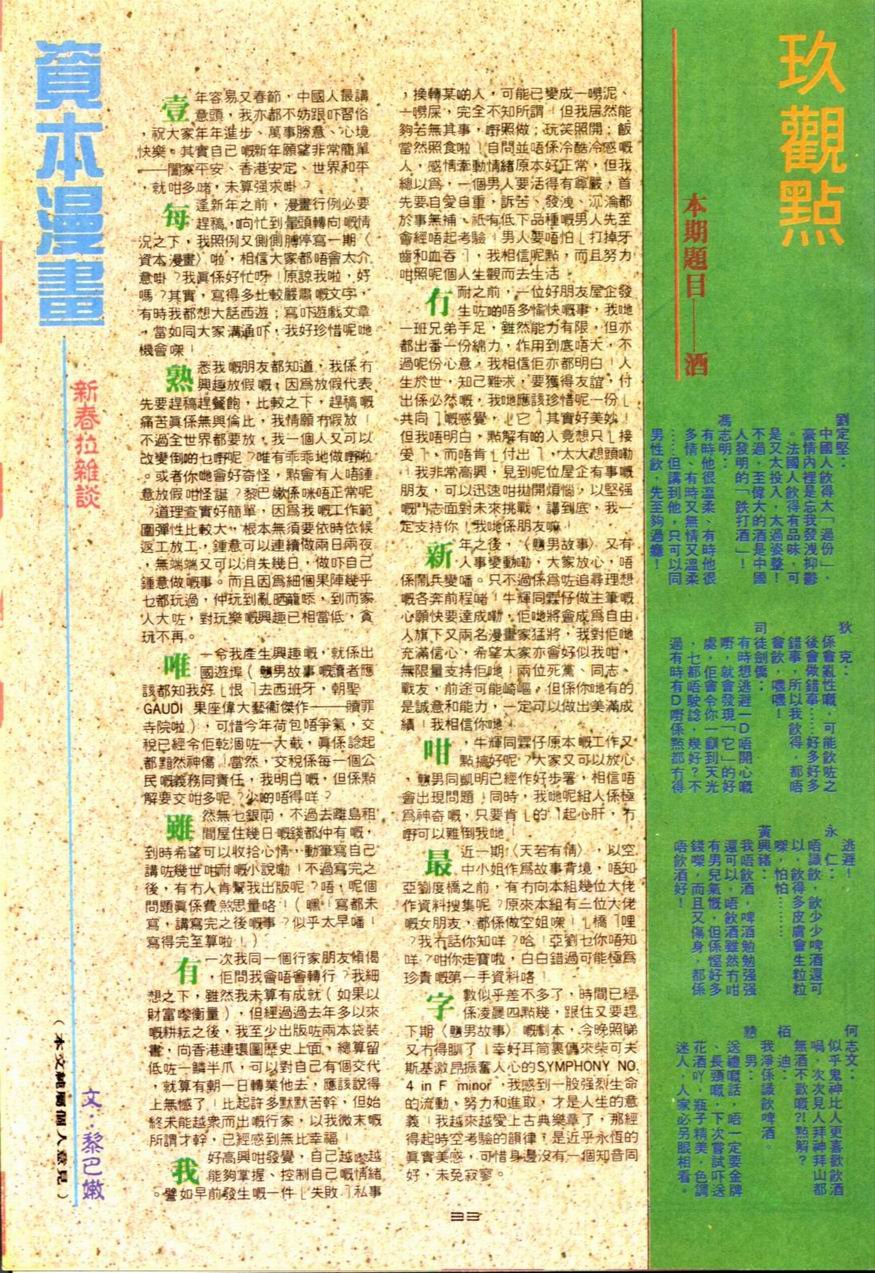 資本漫畫
新春拉雜談
文：黎巴嫩
（本文純屬個人意見）
壹年容易又春節，中國人最講
意頭，我亦都不妨跟吓習俗
，祝大家年年進步、萬事勝意、心境
快樂。其實自己嘅新年願望非常簡單
——闔家平安、香港安定、世界和平
，就咁多啫，未算强求啩？
每逢新年之前，漫畫行例必要
趕稿，响忙到暈頭轉向嘅情
況之下，我照例又側側膊停寫一期〈
資本漫畫〉啦，相信大家都唔會太介
意啩？我眞係好忙呀！原諒我啦，好
嗎？其實，寫得多比較嚴肅嘅文字，
有時我都想大話西遊；寫吓遊戲文章
，當如同大家溝通吓，我好珍惜呢哋
機會㗎！
熟悉我嘅朋友都知道，我係冇
興趣放假嘅；因爲放假代表
先要趕稿趕餐飽，比較之下，趕稿嘅
痛苦眞係無與倫比，我情願冇假放！
不過全世界都要放，我一個人又可以
改變倒的乜嘢呢？唯有乖乖地做嘢啦
。或者你哋會好奇怪，點會有人唔鍾
意放假咁怪誕？黎巴嫩係咪唔正常呢
？道理查實好簡單，因爲我嘅工作範
圍彈性比較大，根本無須要依時依候
返工放工，鍾意可以連續做兩日兩夜
，無端端又可以消失幾日，做吓自己
鍾意做嘅事。而且因爲細個果陣幾乎
乜都玩過，仲玩到亂晒籠㖭，到而家
人大咗，對玩樂嘅興趣已相當低，貪
玩不再。
唯一令我產生興趣嘅，就係出
國遊埠（戇男故事嘅讀者應
該都知我好「恨」去西班牙，朝聖
GAUDI 果座偉大藝術傑作——贖罪
寺院啦），可惜今年荷包唔爭氣，交
稅已經令佢乾涸咗一大截，眞係諗起
都黯然神傷！當然，交稅係每一個公
民嘅義務同責任，我明白嘅，但係點
解要交咁多呢？少啲唔得咩？
雖然無乜銀両，不過去離島租
間屋住幾日嘅錢都仲有嘅，
到時希望可以收拾心情，動筆寫自己
講咗幾世咁耐嘅小說嘞！不過寫完之
後，有冇人肯幫我出版呢？唔，呢個
問題眞係費煞思量咯！（嘿！寫都未
寫，講寫完之後嘅事？似乎太早噃！
寫得完至算啦！）
有一次我同一個行家朋友傾偈
，佢問我會唔會轉行？我細
想之下，雖然我未算有成就（如果以
財富嚟衡量），但經過過去年多以來
嘅耕耘之後，我至少出版咗兩本袋裝
書，向香港連環圖歷史上面，總算留
低咗一鱗半爪，可以對自己有個交代
，就算有朝一日轉業他去，應該說得
上無憾了！比起許多默默苦幹，但始
終未能越衆而出嘅行家，以我微末嘅
所謂才幹，已經感到無比幸福！
我好高興咁發覺，自己越嚟越
能夠掌握、控制自己嘅情緒
。譬如早前發生嘅一件「失敗」私事
，換轉某啲人，可能已變成一嚿泥、
一嚿屎，完全不知所謂！但我居然能
夠若無其事，嘢照做；玩笑照開；飯
當然照食啦！自問並唔係冷酷冷感嘅
人，感情牽動情緒原本好正常，但我
總以爲，一個男人要活得有尊嚴，首
先要自愛自重，訴苦、發洩、沉淪都
於事無補，衹有低下品種嘅男人先至
會經唔起考驗！男人要唔怕「打掉牙
齒和血吞」，我相信呢點，而且努力
咁照呢個人生觀而去生活。
冇耐之前，一位好朋友屋企發
生咗啲唔多愉快嘅事，我哋
一班兄弟手足，雖然能力有限，但亦
都出番一份綿力，作用到底唔大，不
過呢份心意，我相信佢亦都明白！人
生於世，知己難求，要獲得友誼，付
出係必然嘅，我哋應該珍惜呢一份「
共同」嘅感覺，「它」其實好美妙！
但我唔明白，點解有啲人竟想只「接
受」，而唔肯「付出」，太大想頭嘞
！我非常高興，見到呢位屋企有事嘅
朋友，可以迅速咁拋開煩惱，以堅强
嘅鬥志面對未來挑戰，講到底，我一
定支持你！我哋係朋友嘛！
新年之後，〈戇男故事〉又有
人事變動嘞，大家放心，唔
係鬧兵變噃。只不過係爲咗追尋理想
嘅各奔前程啫！牛輝同霖仔做主筆嘅
心願快要達成嘞，佢哋將會成爲自由
人旗下又兩名漫畫家猛將，我對佢哋
充滿信心，希望大家亦會好似我咁，
無限量支持佢哋！兩位死黨、同志、
戰友，前途可能崎嶇，但係你哋有的
是誠意和能力，一定可以做出美滿成
績！我相信你哋！
咁，牛輝同霖仔原本嘅工作又
點搞好呢？大家又可以放心
，戇男同凱明已經作好步署，相信唔
會出現問題！同時，我哋呢組人係極
爲神奇嘅，只要肯「的」起心肝，冇
嘢可以難倒我哋！
最近一期〈天若有情〉，以空
中小姐作爲故事背境，唔知
亞劉度橋之前，有冇向本組幾位大佬
作資料搜集呢？原來本組有三位大佬
嘅女朋友，都係做空姐㗎！「橋」哩
？我冇話你知咩？哈！亞劉乜你唔知
咩？咁你走寶啦，白白錯過可能極爲
珍貴嘅第一手資料咯！
字數似乎差不多了，時間已經
係凌晨四點幾，跟住又要趕
下期〈戇男故事〉嘅劇本，今晚照睇
又冇得瞓了！幸好耳筒裏傳來柴可夫
斯基激昂振奮人心的SYMPHONY NO.
4 in F minor，我感到一股强烈生命
的流動、努力和進取，才是人生的意
義！我越來越愛上古典樂章了，那經
得起時空考驗的韻律，是近乎永恆的
眞實美感，可惜身邊沒有一個知音同
好，未免寂寥。
33
玖觀點
本期題目——酒
劉定堅：
中國人飲得太「過份」，
豪情內裡是忘我發洩抑鬱
。法國人飲得有品味，可
是又太投入，太過姿整！
不過，至偉大的酒是中國
人發明的「跌打酒」！
馮志明：
有時他很溫柔、有時他很
多情、有時又無情又溫柔
……但講到他，只可以同
男性飲，先至夠過癮！
狄克：
係會亂性嘅，可能飲咗之
後會做錯事……好多好多
錯事，所以我飲得，都唔
會飲，嘿嘿！
司徒劍僑：
有時想逃避一D唔開心嘅
嘢，就會發現「它」的好
處，佢會令你一瞓到天光
，乜都唔駛諗，幾好？不
過有時有D嘢係點都冇得
逃避！
永仁：
唔識飲，飲少少啤酒還可
以，飲得多皮膚會生粒粒
㗎，怕怕………
黃興緒：
我唔飲酒，啤酒勉勉强强
還可以，唔飲酒雖然冇咁
有男兒氣慨，但係慳好多
錢㗎，而且又傷身，都係
唔飲酒好！
何志文：
似乎鬼神比人更喜歡飲酒
喎，次次見人拜神拜山都
無酒不歡嘅？！點解？
栢迪：
我淨係識飲啤酒。
戇男：
送禮嘅話，唔一定要金牌
、長頸嘅，下次嘗試吓送
花酒吖，瓶子精美，色調
迷人，人家必另眼相看。